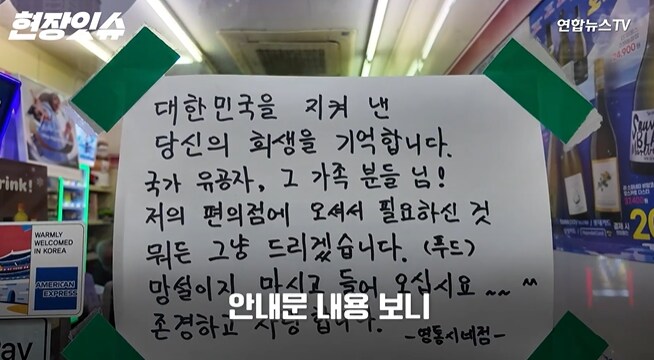 현장잇슈
연합뉴스TV
대한민국을 지켜 낸
당신의 희생을 기억합니다.
국가 유공자, 그 가족 분들 님!
저의 편의점에 오셔서 필요하신 것
뭐든 그냥 드리겠습니다. (푸드)
망설이지 마시고 들어 오십시요~~ ^^
존경하고 사랑합니다. -명동시네점-
안내문 내용 보니
rink!
WARMLY
WELCOMED
IN KOREA
AMERICAN
EXPRESS
way